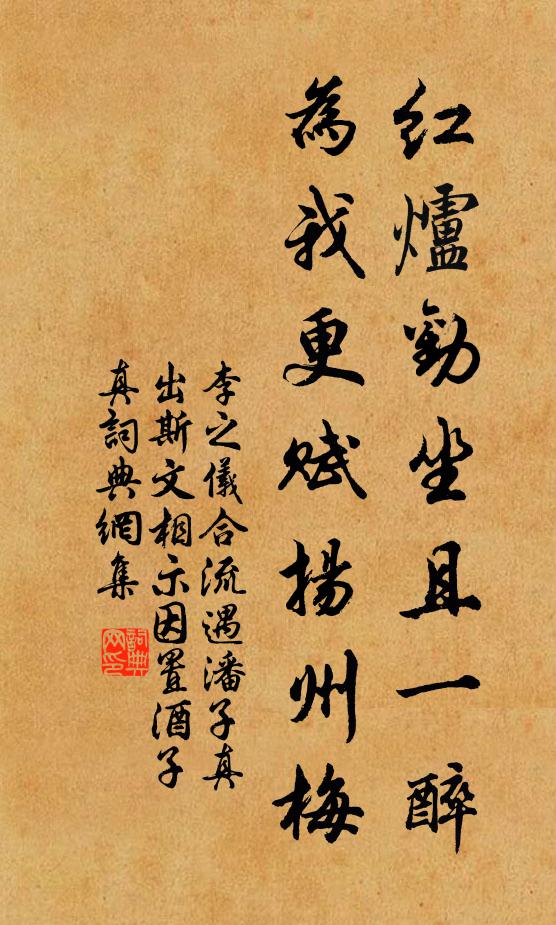 紅爐勸坐且一醉
為我更賦揚州梅
李之儀合流遇潘子真
出斯文相示因置酒子
真詞典網集
詞典網印